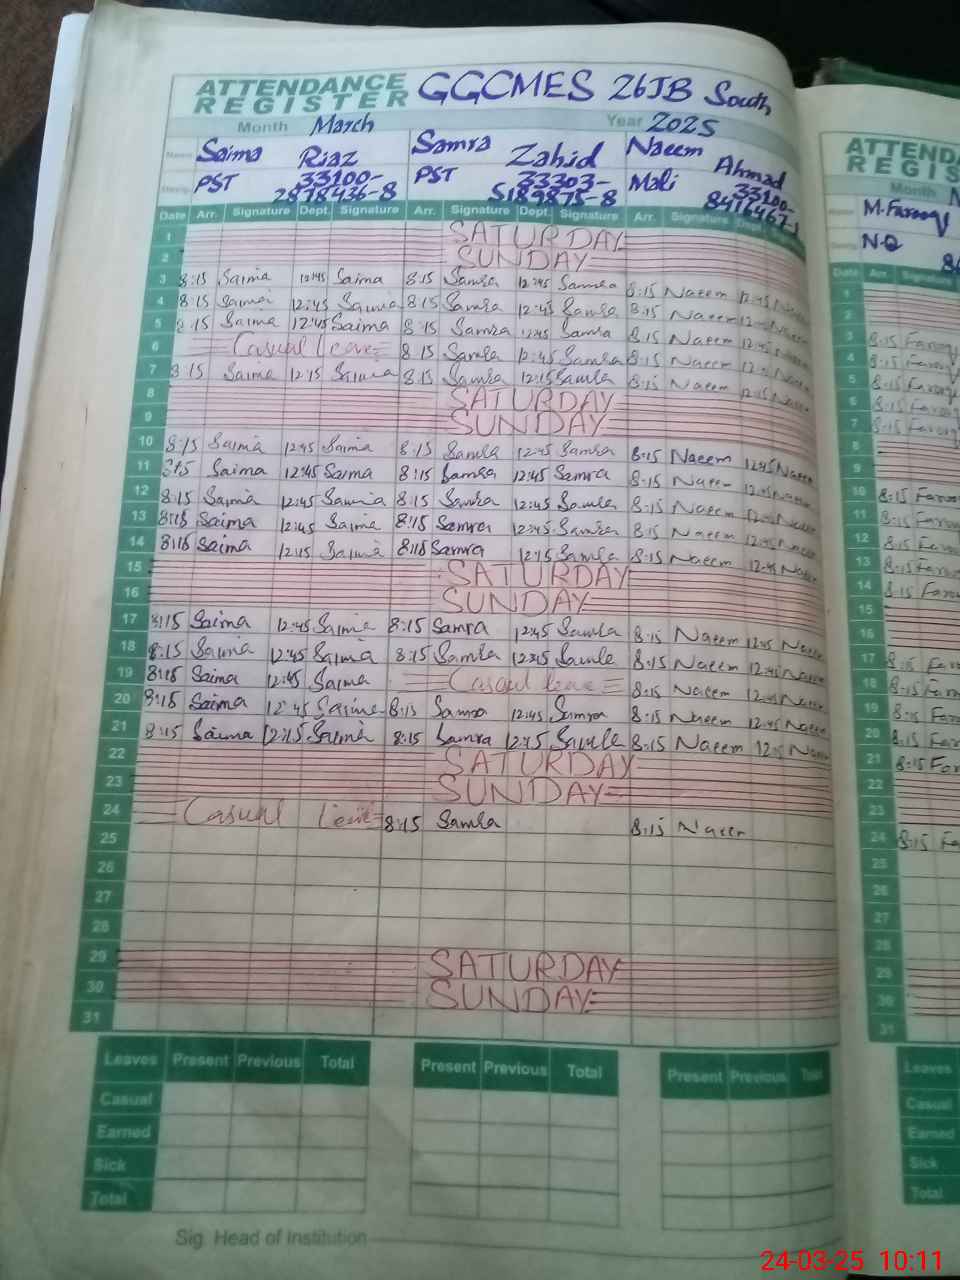 ATTENDANCE REGISTER GGCMES 26JB South
Month March Year 2025
Name Saima Riaz Samra Zahid Naeem Ahmad
PST 33100- PST 33303- Mali 33100-
2878436-8 5189875-8
Date Arr. Signature Dept. Signature Arr. Signature Dept. Signature Arr. Signature
1 SATURDAY
2 SUNDAY
3 8:15 Saima 12:45 Saima 8:15 Samra 12:45 Samra 8:15 Naeem 12:45
4 8:15 Saima 12:45 Saima 8:15 Samra 12:45 Samra 8:15 Naeem 12:45
5 8:15 Saima 12:45 Saima 8:15 Samra 12:45 Samra 8:15 Naeem 12:45
6 Casual leave 8:15 Samra 12:45 Samra 8:15 Naeem 12:45
7 8:15 Saima 12:15 Saima 8:15 Samra 12:15 Samra 8:15 Naeem 12:15
8 SATURDAY
9 SUNDAY
10 8:15 Saima 12:45 Saima 8:15 Samra 12:45 Samra 8:15 Naeem 12:45 Naeem
11 8:15 Saima 12:45 Saima 8:15 Samra 12:45 Samra 8:15 Naeem 12:45 Naeem
12 8:15 Saima 12:45 Saima 8:15 Samra 12:45 Samra 8:15 Naeem 12:45 Naeem
13 8:15 Saima 12:45 Saima 8:15 Samra 12:45 Samra 8:15 Naeem 12:45 Naeem
14 8:15 Saima 12:15 Saima 8:15 Samra 12:15 Samra 8:15 Naeem Naeem
15 SATURDAY
16 SUNDAY
17 8:15 Saima 12:45 Saima 8:15 Samra 12:45 Samra 8:15 Naeem 12:45 Naeem
18 8:15 Saima 12:45 Saima 8:15 Samra 12:45 Samra 8:15 Naeem 12:45 Naeem
19 8:15 Saima 12:45 Saima Casual leave 8:15 Naeem 12:45 Naeem
20 8:15 Saima 12:45 Saima 8:15 Samra 12:45 Samra 8:15 Naeem 12:45 Naeem
21 8:15 Saima 12:15 Saima 8:15 Samra 12:15 Samra 8:15 Naeem 12:15 Naeem
22 SATURDAY
23 SUNDAY
24 Casual leave 8:15 Samra 8:15 Naeem
25
26
27
28
29 SATURDAY
30 SUNDAY
31
Leaves Present Previous Total Present Previous Total Present Previous Total
Casual
Earned
Sick
Total
Sig. Head of Institution
M. Farooq
N-Q
Date Arr. Signature
1
2
3 8:15 Farooq
4 8:15 Farooq
5 8:15 Farooq
6 8:15 Farooq
7 8:15 Farooq
8
9
10 8:15
11 8:15
12 8:15
13 8:15
14 8:15
15
16
17 8:15
18 8:15
19 8:15
20 8:15
21 8:15
22
23
24 8:15
25
26
27
28
29
30
31
Leaves
Casual
Earned
Sick
Total
24-03-25 10:11